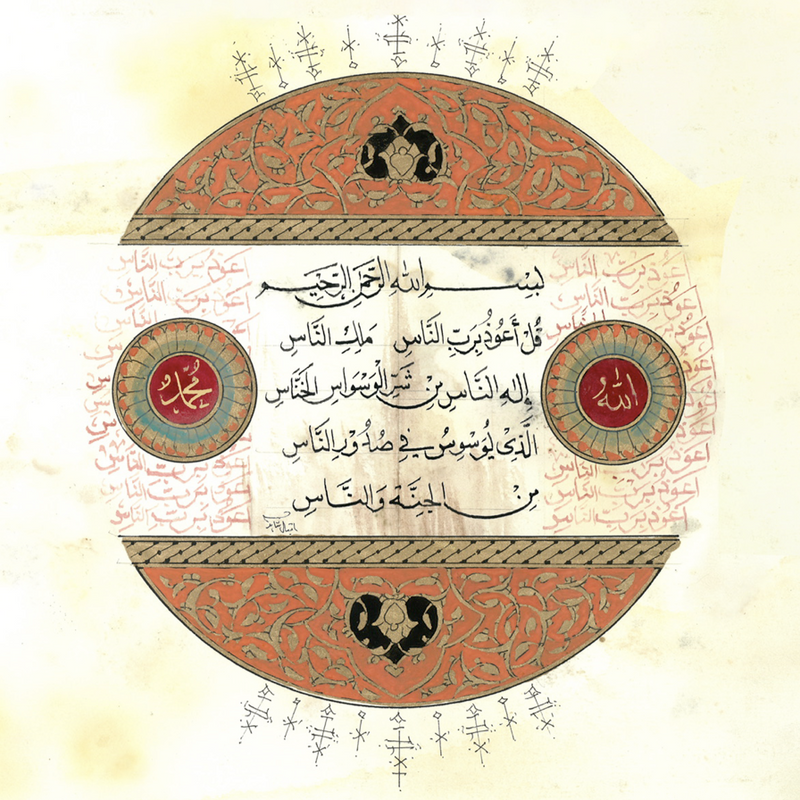 بِسْمِ اللهِ الرَّحْمٰنِ الرَّحِيمِ
قُلْ أَعُوذُ بِرَبِّ النَّاسِ مَلِكِ النَّاسِ
إِلٰهِ النَّاسِ مِن شَرِّ الْوَسْوَاسِ الْخَنَّاسِ
الَّذِي يُوَسْوِسُ فِي صُدُورِ النَّاسِ
مِنَ الْجِنَّةِ وَالنَّاسِ
الله
محمد
اعوذ برب الناس
اعوذ برب الناس
اعوذ برب الناس
اعوذ برب الناس
اعوذ برب الناس
اعوذ برب الناس
اعوذ برب الناس
اعوذ برب الناس